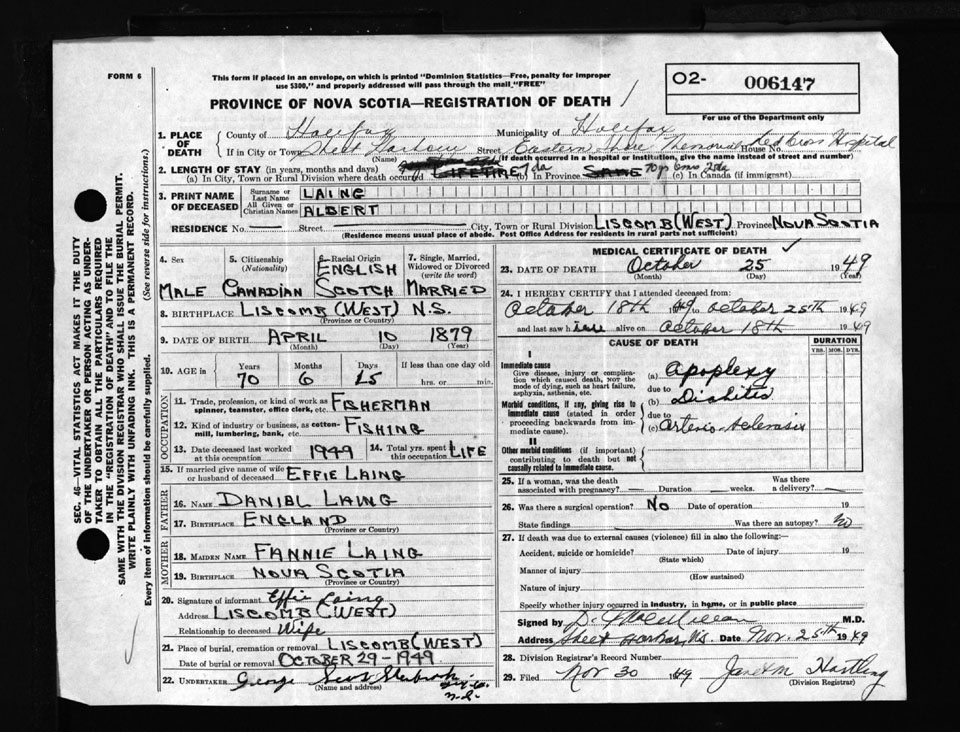 FORM 6
This form if placed in an envelope, on which is printed "Dominion Statistics—Free, penalty for improper
use $300," and properly addressed will pass through the mail "FREE"
O2- 006147
For use of the Department only
PROVINCE OF NOVA SCOTIA—REGISTRATION OF DEATH
1. PLACE OF DEATH County of Halifax Municipality of Halifax
If in City or Town Sheet Harbour Street Eastern Shore Memorial Red Cross Hospital House No.
(Name) (If death occurred in a hospital or institution, give the name instead of street and number)
2. LENGTH OF STAY (in years, months and days)
(a) In City, Town or Rural Division where death occurred LIFETIME 7 da (b) In Province SAME 70 yrs 6 mos (c) In Canada (if immigrant)
3. PRINT NAME OF DECEASED Surname or Last Name LAING
All Given or Christian Names ALBERT
RESIDENCE No. — Street — City, Town or Rural Division LISCOMB (WEST) Province NOVA SCOTIA
(Residence means usual place of abode. Post Office Address for residents in rural parts not sufficient)
4. Sex MALE
5. Citizenship (Nationality) CANADIAN
6. Racial Origin ENGLISH SCOTCH
7. Single, Married, Widowed or Divorced (write the word) MARRIED
8. BIRTHPLACE LISCOMB (WEST) N.S.
(Province or Country)
9. DATE OF BIRTH APRIL 10 1879
(Month) (Day) (Year)
10. AGE in Years 70 Months 6 Days 15 If less than one day old hrs. or min.
OCCUPATION
11. Trade, profession, or kind of work as spinner, teamster, office clerk, etc. FISHERMAN
12. Kind of industry or business, as cotton-mill, lumbering, bank, etc. FISHING
13. Date deceased last worked at this occupation 1949 14. Total yrs. spent in this occupation LIFE
15. If married give name of wife or husband of deceased EFFIE LAING
FATHER
16. NAME DANIEL LAING
17. BIRTHPLACE ENGLAND
(Province or Country)
MOTHER
18. MAIDEN NAME FANNIE LAING
19. BIRTHPLACE NOVA SCOTIA
(Province or Country)
20. Signature of informant Effie Laing
Address LISCOMB (WEST)
Relationship to deceased Wife
21. Place of burial, cremation or removal LISCOMB (WEST)
Date of burial or removal OCTOBER 29-1949
22. UNDERTAKER George
(Name and address)
N.S.
MEDICAL CERTIFICATE OF DEATH
23. DATE OF DEATH October 25 1949
(Month) (Day) (Year)
24. I HEREBY CERTIFY that I attended deceased from:
October 18th 1949 to October 25th 1949
and last saw h alive on October 18th 1949
CAUSE OF DEATH DURATION
YRS. MOS. DYS.
I
Immediate cause
Give disease, injury or complication which caused death, not the mode of dying, such as heart failure, asphyxia, asthenia, etc.
(a) Apoplexy
due to
Morbid conditions, if any, giving rise to immediate cause (stated in order proceeding backwards from immediate cause).
(b) Diabetes
due to
(c) Arterio-sclerosis
II
Other morbid conditions (if important) contributing to death but not causally related to immediate cause.
25. If a woman, was the death associated with pregnancy? — Duration — weeks. Was there a delivery? —
26. Was there a surgical operation? No Date of operation 19
State findings Was there an autopsy? No
27. If death was due to external causes (violence) fill in also the following:—
Accident, suicide or homicide? Date of injury 19
(State which)
Manner of injury
(How sustained)
Nature of injury
Specify whether injury occurred in industry, in home, or in public place
Signed by M.D.
Address Sheet Harbour, N.S. Date Nov. 25th 1949
28. Division Registrar's Record Number
29. Filed Nov 30 1949 Janet M Hartling
(Division Registrar)
SEC. 46—VITAL STATISTICS ACT MAKES IT THE DUTY
OF THE UNDERTAKER OR PERSON ACTING AS UNDER-
TAKER TO OBTAIN ALL THE PARTICULARS REQUIRED
IN THE "REGISTRATION OF DEATH" AND TO FILE THE
SAME WITH THE DIVISION REGISTRAR WHO SHALL ISSUE THE BURIAL PERMIT.
WRITE PLAINLY WITH UNFADING INK. THIS IS A PERMANENT RECORD.
Every item of information should be carefully supplied. (See reverse side for instructions.)